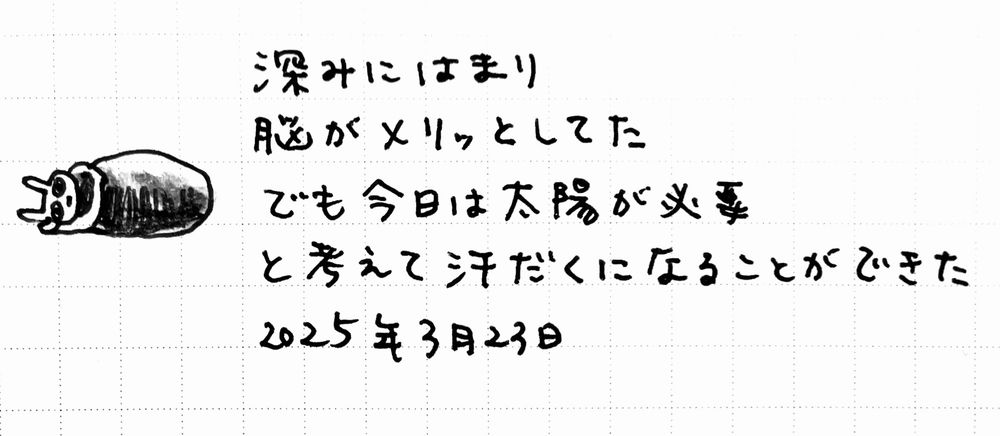 深みにはまり
脳がメリッとしてた
でも今日は太陽が必要
と考えて汗だくになることができた
2025年3月23日